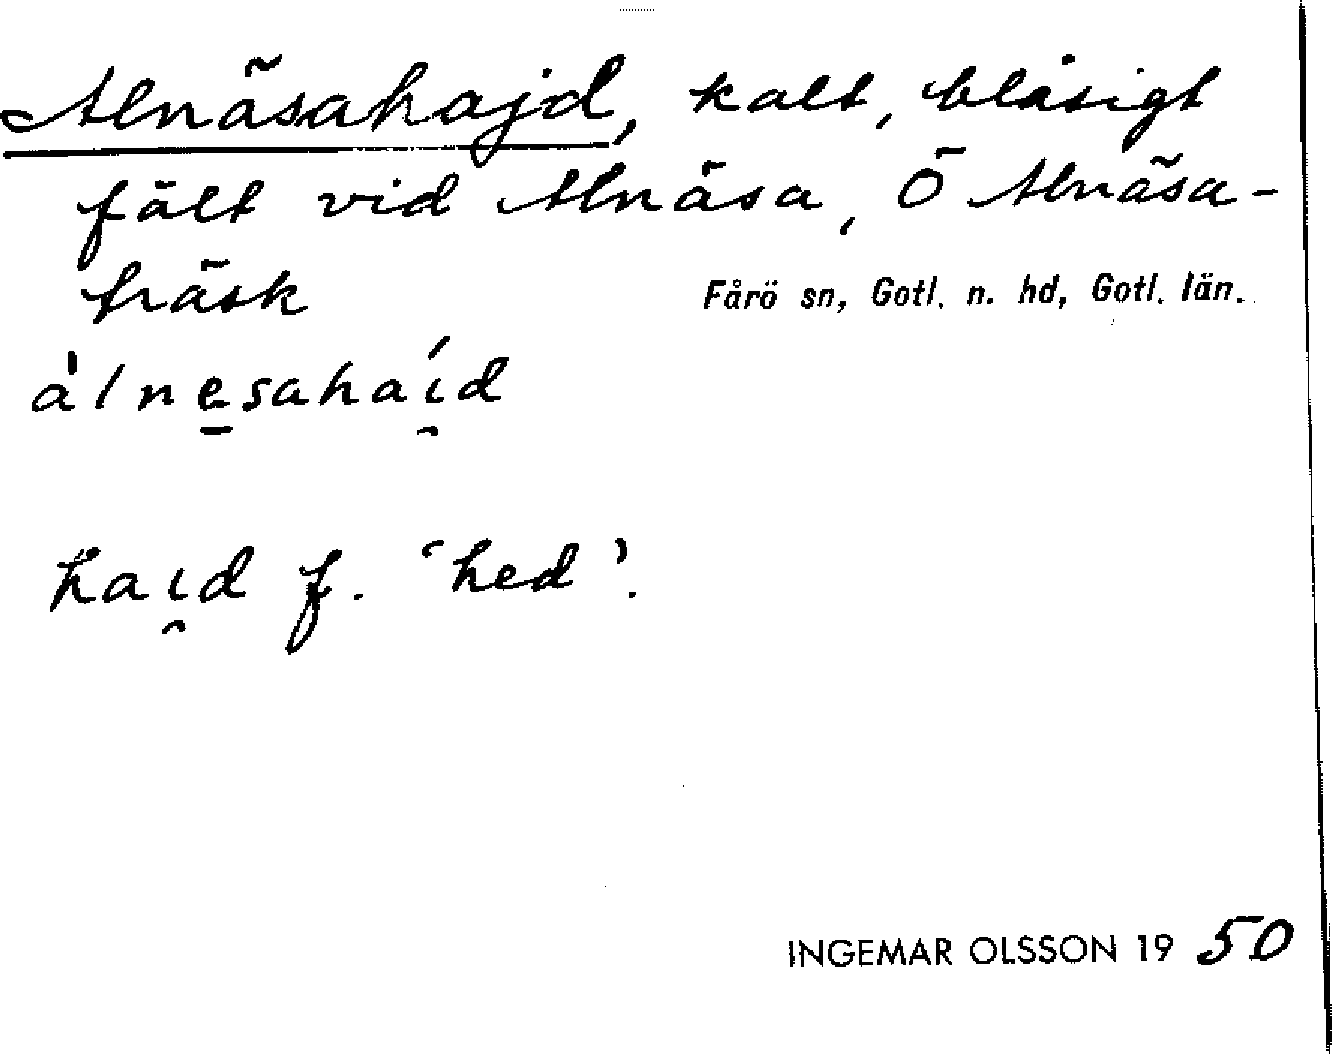 Alnäsahajd, kalt, blåsigt
fält vid Alnäsa, Ö Alnäsa-
träsk
Fårö sn, Gotl. n. hd, Gotl. län.
àlne̱sahaí̯d
hai̯d f. ‘hed’.
INGEMAR OLSSON 19 50